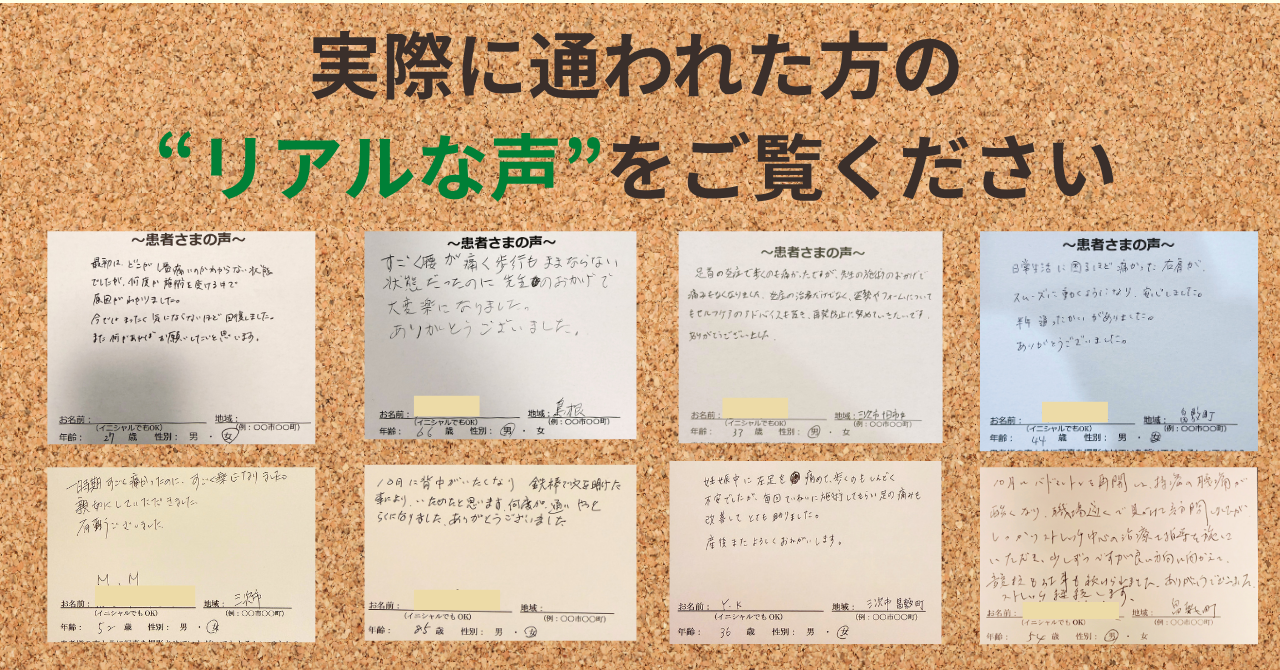 実際に通われた方の
“リアルな声”をご覧ください
～患者さまの声～
最初は どこが 痛いのかわからない状態
でしたが、何度か施術を受ける中で
原因がわかりました。
今ではまったく気にならないほど回復しました。
また何かあればお願いしたいと思います。
お名前： 地域：
(イニシャルでもOK) (例：〇〇市〇〇町)
年齢： 27 歳 性別： 男 ・ 女
～患者さまの声～
すごく腰が痛く歩行もままならない
状態だったのに先生のおかげで
大変楽になりました。
ありがとうございました。
お名前： 地域： 島根
(イニシャルでもOK) (例：〇〇市〇〇町)
年齢： 66 歳 性別： 男 ・ 女
～患者さまの声～
足首の炎症で歩くのも痛かったですが、先生の施術のおかげで
痛みもなくなりました。炎症の治療だけでなく、姿勢やフォームについて
もセルフケアのアドバイスも頂き、再発防止に努めていきたいです。
ありがとうございました。
お名前： 地域： 三次市
(イニシャルでもOK) (例：〇〇市〇〇町)
年齢： 37 歳 性別： 男 ・ 女
～患者さまの声～
日常生活に困るほど痛かった右肩が、
スムーズに動くようになり、安心しました。
半年通ったかいがありました。
ありがとうございました。
お名前： 地域： 畠敷町
(イニシャルでもOK) (例：〇〇市〇〇町)
年齢： 44 歳 性別： 男 ・ 女
一時期すごく痛かったのに、すごく楽になりました。
親切にしていただきました
有難うございました。
M.M
お名前： 地域： 三次市
(イニシャルでもOK) (例：〇〇市〇〇町)
年齢： 52 歳 性別： 男 ・ 女
10月に背中がいたくなり 鉄棒で穴を開けた
事により、いためたと思います。何度か、通い やっと
らくになりました。ありがとうございました
お名前： 地域：
(イニシャルでもOK) (例：〇〇市〇〇町)
年齢： 85 歳 性別： 男 ・ 女
妊娠中に左足を痛めて、歩くのもしんどく
不安でしたが、毎回ていねいに施術してもらい足の痛みも
改善して とても助りました。
産後またよろしくおねがいします。
お名前： Y.K 地域： 三次市畠敷町
(イニシャルでもOK) (例：〇〇市〇〇町)
年齢： 36 歳 性別： 男 ・ 女
10月にバドミントンを再開し、
酷くなり、職場近くで見つけて訪問しましたが
しっかりストレッチ中心の治療と指導を施して
いただき、少しずつですが良い方向に向かえて、
ストレッチ継続します。
お名前： 地域： 畠敷町
(イニシャルでもOK) (例：〇〇市〇〇町)
年齢： 54 歳 性別： 男 ・ 女